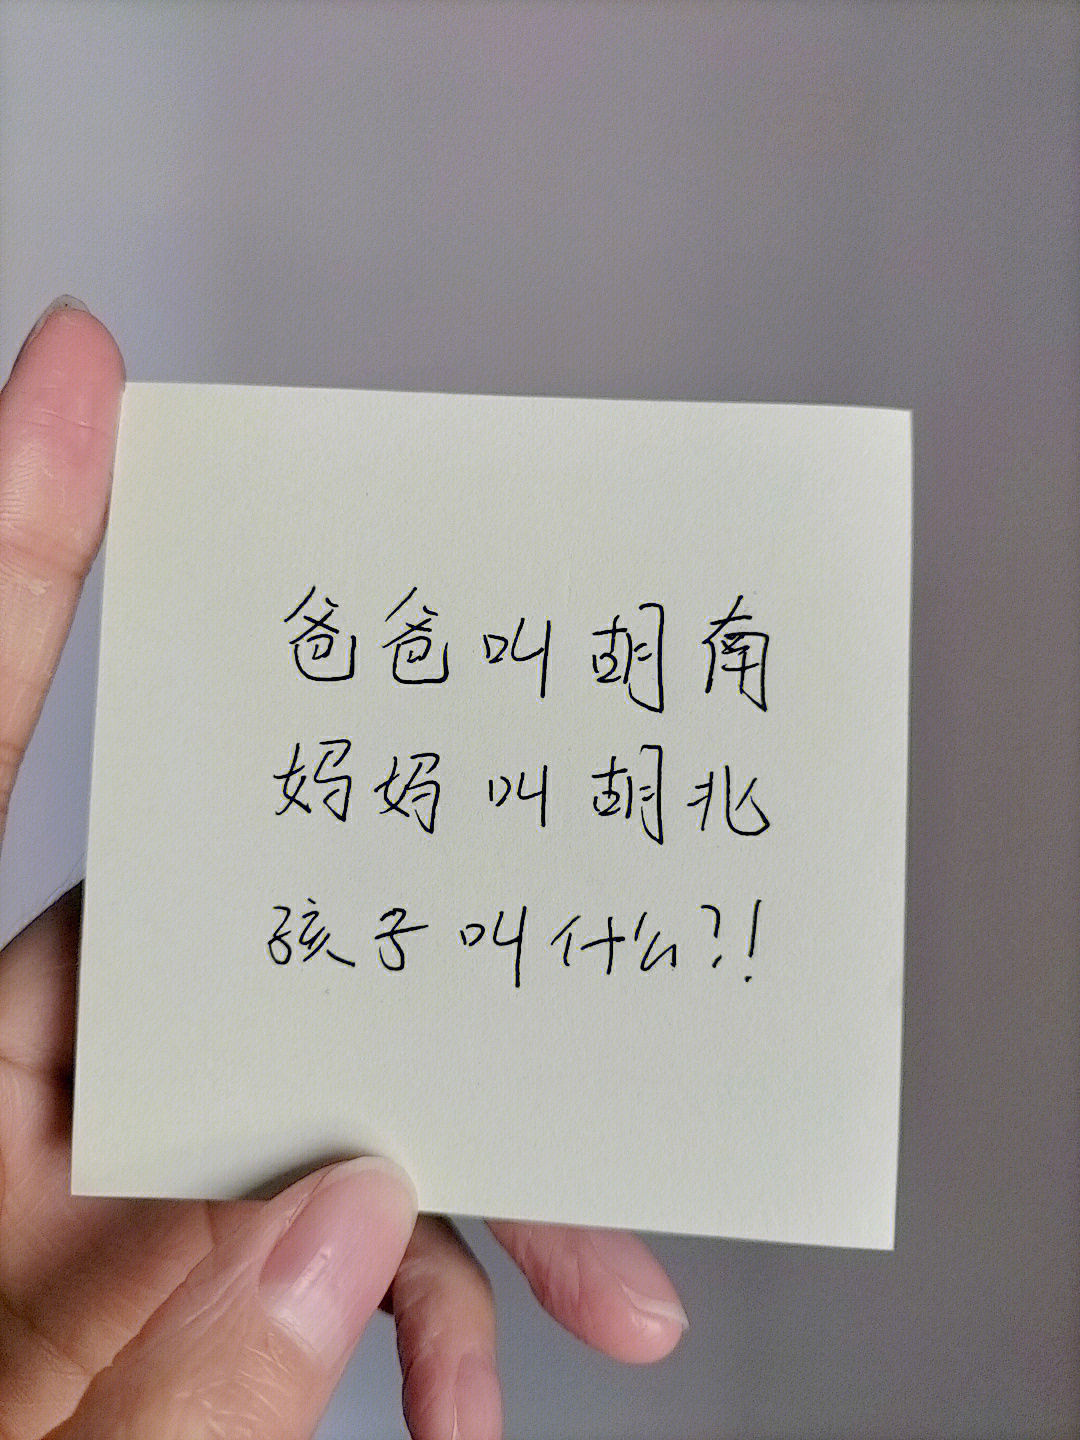 爸爸叫胡南
妈妈叫胡北
孩子叫什么?!